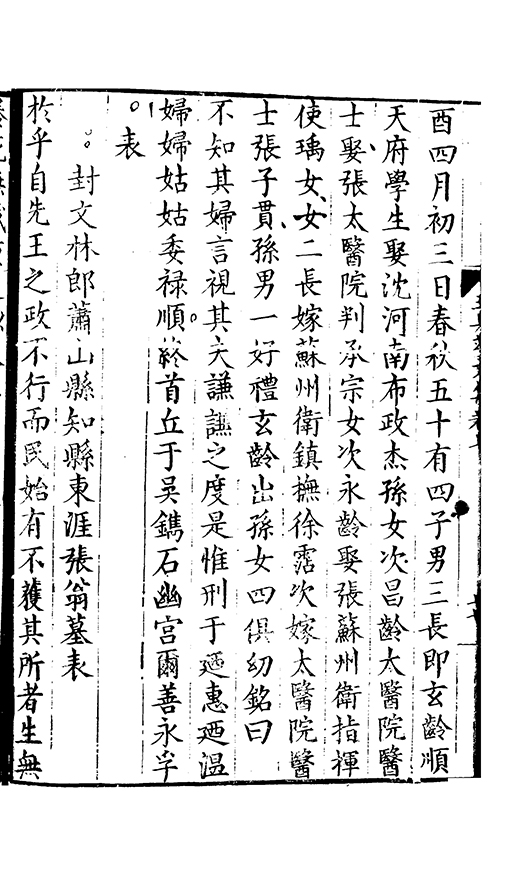 酉四月初三日春秋五十有四子男三長即玄齡順
天府學生娶沈河南布政杰孫女次昌齡太醫院醫
士娶張太醫院判承宗女次永齡娶張蘇州衛指揮
使瑀女女二長嫁蘇州衛鎮撫徐霑次嫁太醫院醫
士張子貫孫男一好禮玄齡出孫女四俱幼銘曰
不知其婦言視其夫謙謙之度是惟刑于迺惠迺溫
婦婦姑姑委祿順終首丘于吳鐫石幽宮爾善永孚
表
封文林郎蕭山縣知縣東涯張翁墓表
於乎自先王之政不行而民始有不獲其所者生無